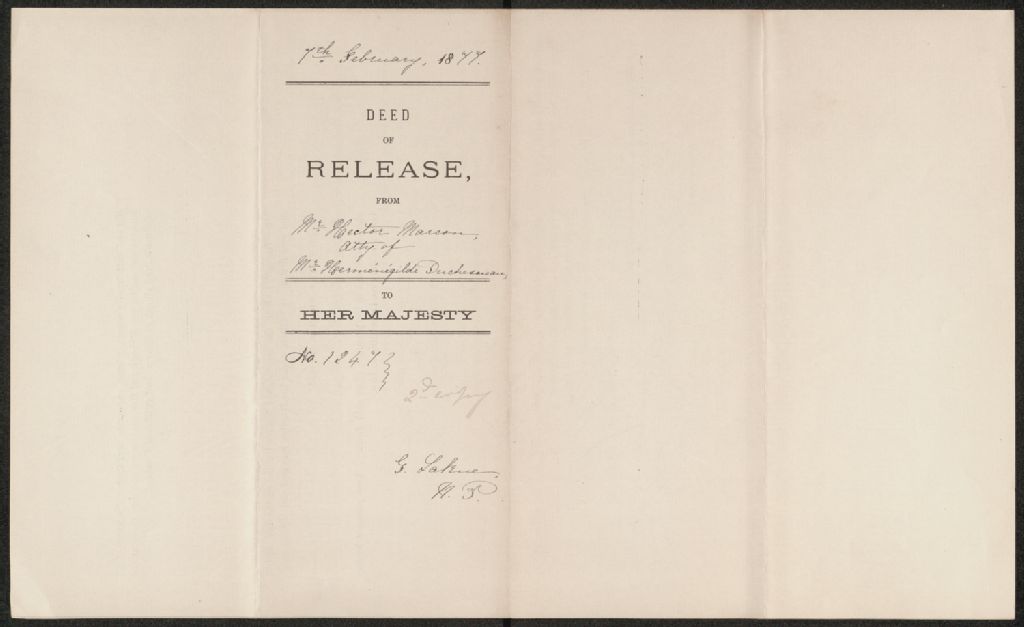 7th February, 1877.
DEED
OF
RELEASE,
FROM
Mr. Hector Marcou,
Atty of
Mr. Herménégilde Duchesneau,
TO
HER MAJESTY
No. 1247
2d copy
G.
N. P.